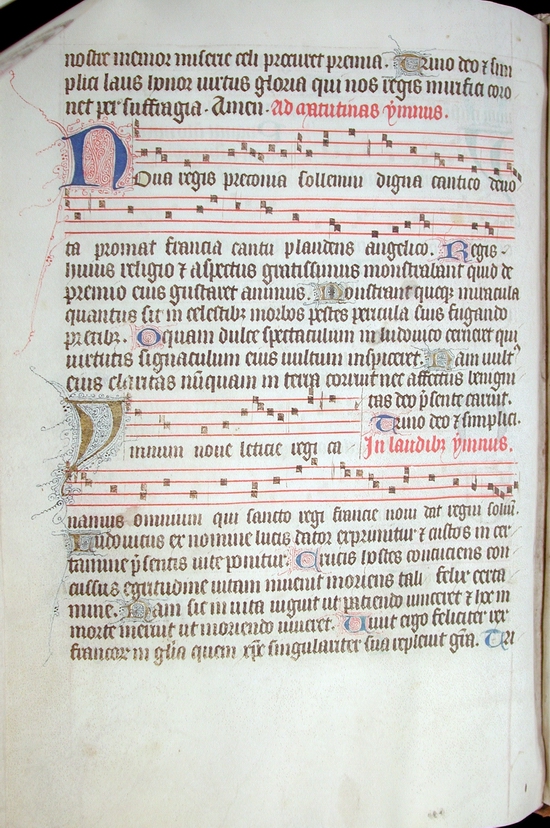 nostre memor miserie celi procuret premia. Trino deo ⁊ sim
plici laus honor uirtus gloria qui nos regis mirifici coro
net per suffragia. Amen. Ad matutinas ymnus.
Noua regis preconia sollemni digna cantico deuo
ta promat francia cantu plaudens angelico. Regis
huius religio ⁊ aspectus gratissimus monstrabant quid de
premio eius gustaret animus. Monstrant queqꝫ miracula
quantus sit in celestibꝫ morbos pestes pericula suis fugando
precibꝫ. O quam dulce spectaculum in ludouico cerneret qui
uirtutis signaculum eius uultum inspiceret. Nam uultꝰ
eius claritas nūquam in terra corruit nec affectus benigni
tas deo p̄sente caruit.
Trino deo ⁊ simplici.
Ymnum noue leticie regi ca
In laudibꝫ ymnus.
namus omnium qui sancto regi francie nouū dat regni soliū.
Ludouicus ex nomine lucis dator exprimitur ⁊ custos in cer
tamine p̄sentis uite ponitur. Crucis hostes conuiciens con
cussus egritudine uitam inuenit moriens tali felix certa
mine. Nam sic in uita uiguit ut patiendo uinceret ⁊ hec in
morte meruit ut moriendo uiueret. Viuit ergo feliciter rex
francorꝫ in gl̄ia quem xp̄c singulariter sua repleuit gr̄a. Tri